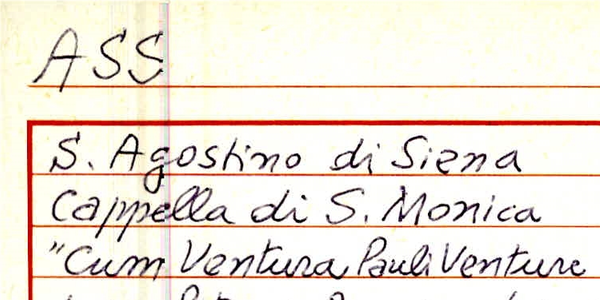 ASS
S. Agostino di Siena
Cappella di S. Monica
"Cum Ventura Pauli Venture